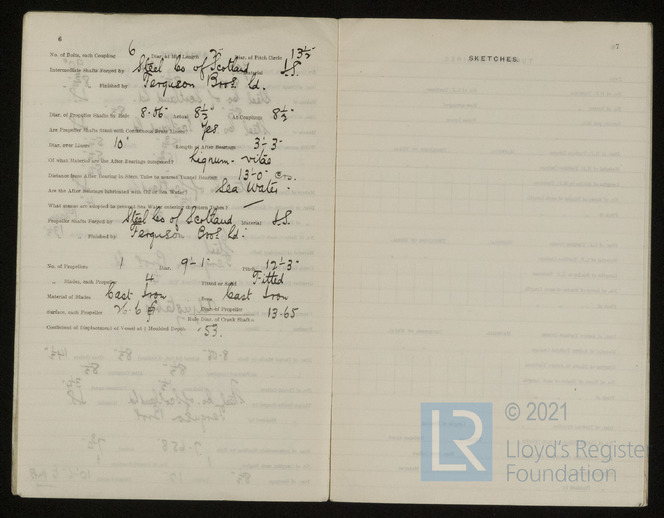 6
No. of Bolts, each Coupling 6 Diar. at Mid Length Diar. of Pitch Circle 13½"
Intermediate Shafts forged by Steel Co of Scotland Material I.S.
Finished by Ferguson Bros. Ld.
Diar. of Propeller Shafts by Rule 8.06" Actual 8½" At Couplings 8½"
Are Propeller Shafts fitted with Continuous Brass Liners? Yes
Diar. over Liners 10" Length of After Bearings 3'-3"
Of what Material are the After Bearings composed? Lignum-vitae
Distance from After Bearing in Stern Tube to nearest Tunnel Bearing 13'-0" Crs.
Are the After Bearings lubricated with Oil or Sea Water? Sea Water.
What means are adopted to prevent Sea Water entering the Stern Tubes? —
Propeller Shafts forged by Steel Co of Scotland Material I.S.
Finished by Ferguson Bros Ld.
No. of Propellers 1 Diar. 9'-1" Pitch 12'-3"
Blades, each Propeller 4 Fitted or Solid Fitted
Material of Blades Cast Iron Boss Cast Iron
Surface, each Propeller Diar. of Propeller 13.65
Rule Diar. of Crank Shaft
Coefficient of Displacement of Vessel at ¾ Moulded Depth .53.
87
SKETCHES.
LR
© 2021
Lloyd's Register
Foundation